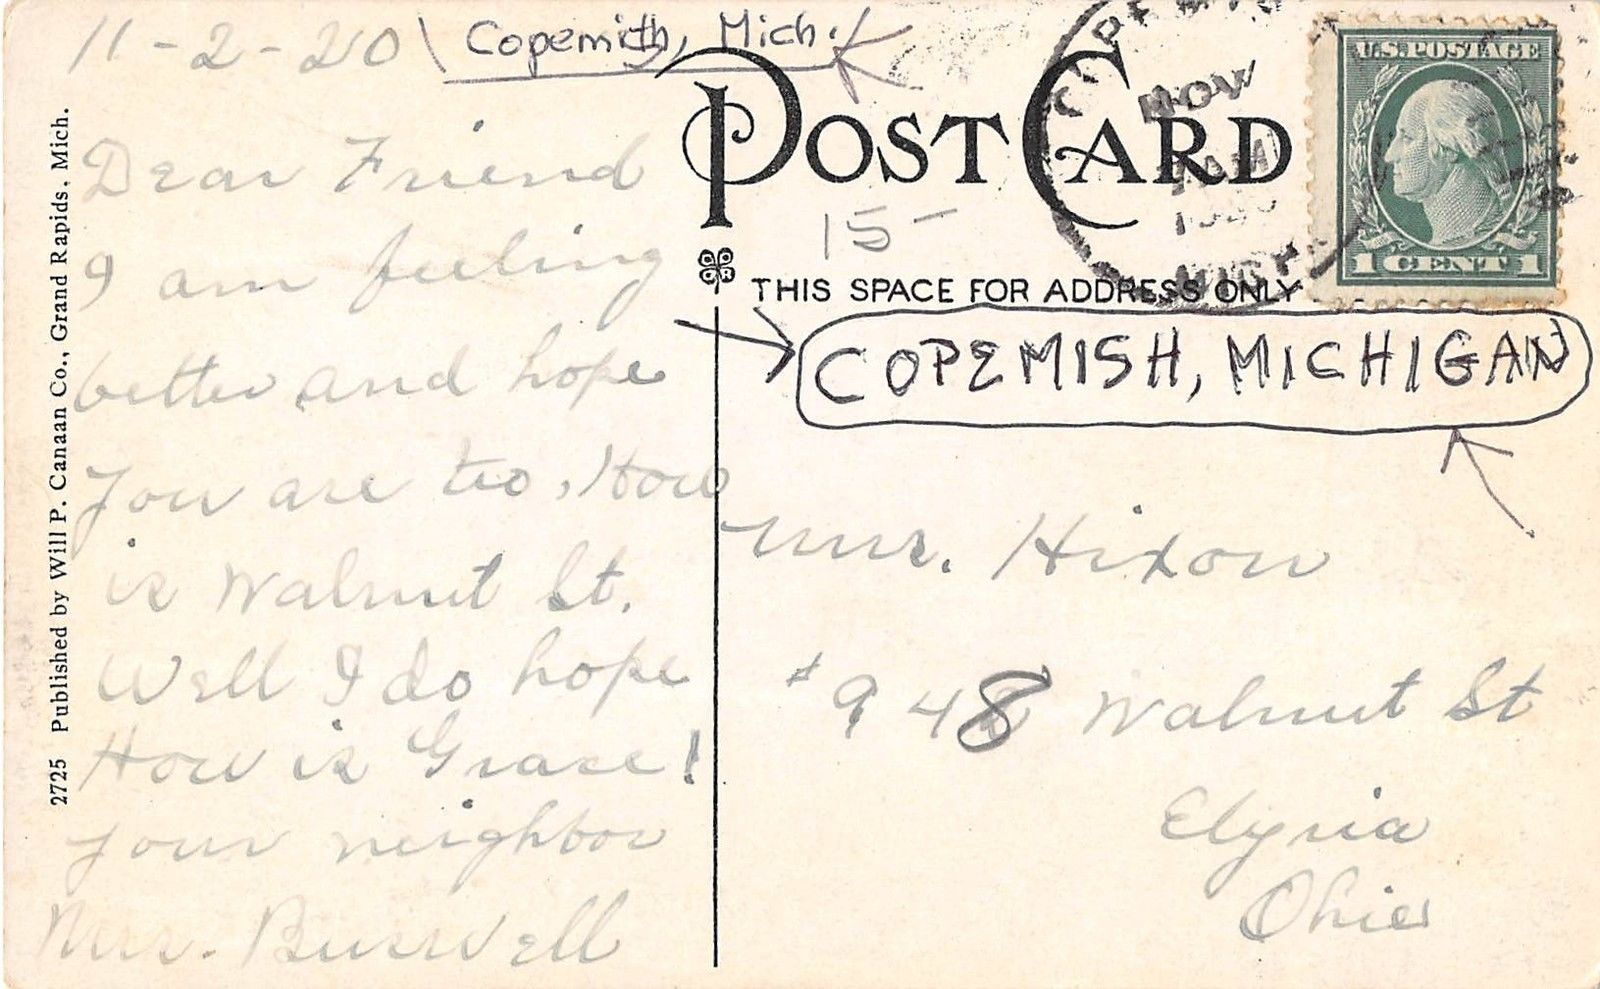 11-2-20 Copemish, Mich.
POST CARD
U.S. POSTAGE
1 CENT 1
NOV
AM
MICH
15-
THIS SPACE FOR ADDRESS ONLY
COPEMISH, MICHIGAN
Dear Friend
I am feeling
better and hope
you are too, How
is Walnut St.
Well I do hope
How is Grace!
Your neighbor
Mrs. Buswell
Mrs. Hixon
# 948 Walnut St
Elyria
Ohio
2725 Published by Will P. Canaan Co., Grand Rapids, Mich.